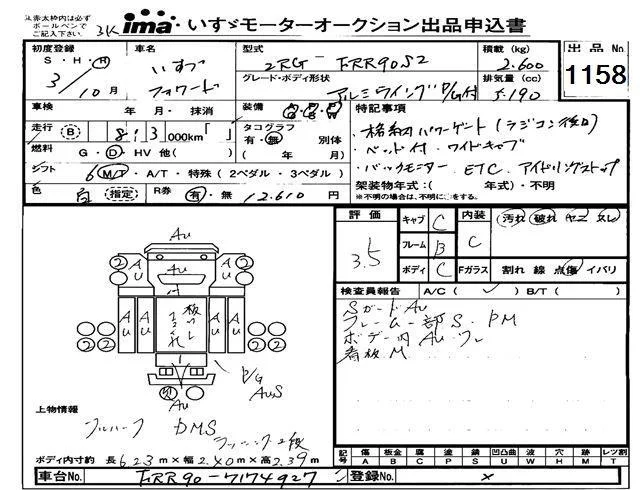 ※赤太枠内は必ず
ボールペンで
ご記入下さい。
3K ima いすゞモーターオークション出品申込書
初度登録 車名 型式 積載(kg) 出品No.
S・H・R いすゞ 2RG-FRR90S2 2.600
グレード・ボディ形状 排気量(cc) 1158
3/10月 フォワード アルミウイング P/G付 5.190
車検 年 月・抹消 装備 特記事項
走行 (B) 8 3 000km「 」 タコグラフ
有・無 別体
・格納パワーゲート(ラジコン後日)
燃料 G・D・HV 他( ) ( 年 月)
・ベッド付・ワイドキャブ
シフト 6 M/T・A/T・特殊(2ペダル・3ペダル)
・バックモニター ETC アイドリングストップ
色 白 (指定) R券 有・無 12.610円
架装物年式:( 年式)・不明
※不明の場合は、不明に○をする。
評価 3.5
キャブ C 内装 C 汚れ 破れ ヤニ ヌレ
フレーム B
ボディ C Fガラス 割れ 線 点傷 イバリ
検査員報告 A/C( ✓ ) B/T( )
SガードAu
フレーム一部S・PM
ボデー内Au ワレ
看板M
Au
② ② ② ②
Au Au Au Au Au
板
Au
P/G
AuS
上物情報
フルハーフ DMS
ラッシング2段
ボディ内寸約 長6.23m×幅2.40m×高2.39m
記号 傷 板金 腐 塗 錆 凹 凸凹曲 波 穴 跡 レツ割
A B C P S U W H M T
車台No. FRR90-7174927 登録No. ×